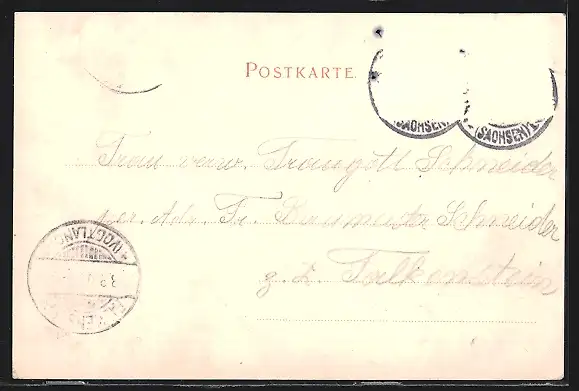 POSTKARTE.
(SACHSEN)
(SACHSEN)
Frau verw. Traugott Schneider
per. Adr. Fr. Baumeister Schneider
z. Z. Falkenstein
(VOGTLAND)